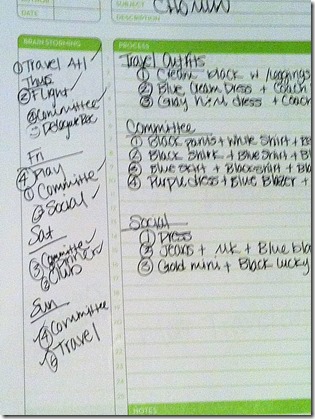 AUTHOR
DATE
SUBJECT
DESCRIPTION
BRAIN STORMING
① Travel Atl
Thurs
② Flight
② Committee
Fri
④ Play
① Committee
② Social
Sat
③ Committee
② Club
Sun
④ Committee
⑤ Travel
PROCESS
Travel Outfits
① Cream black w/ leggings
② Blue Cream Dress + Coach
③ Gray mini dress + Coach
Committee
① Black pants + White Shirt +
② Black Shirt + Blue Shirt +
③ Blue Skirt + Black Shirt +
④ Purple dress + Blue Blazer +
Social
① Dress
② Jeans + MK + Blue
③ Gold mini + Black Lucky
NOTES